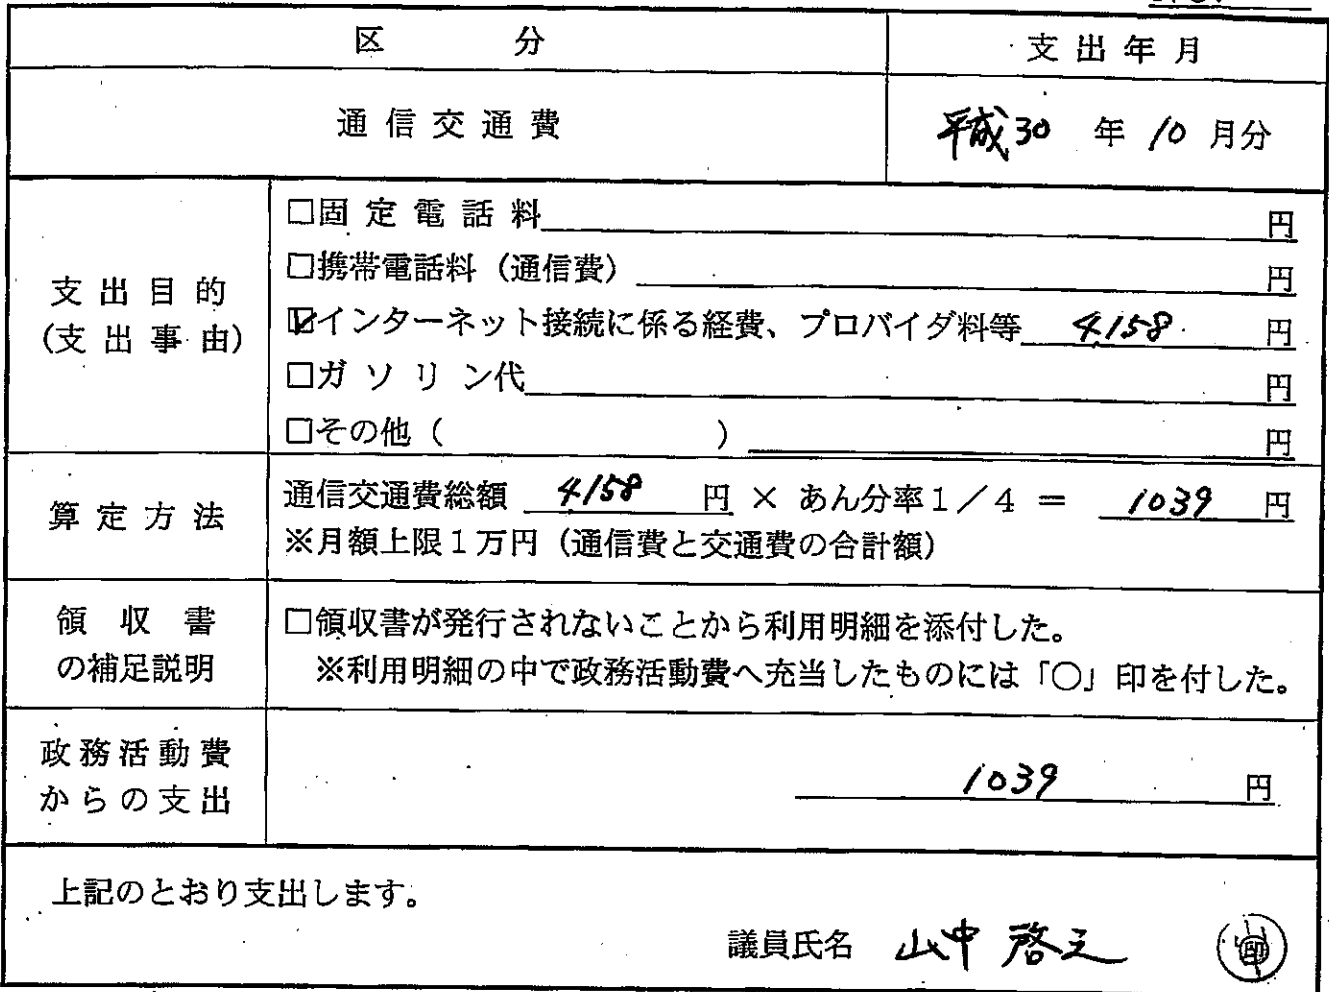 区 分 支出年月
通信交通費 平成30 年 10 月分
支出目的
(支出事由)
□固定電話料 円
□携帯電話料（通信費） 円
☑インターネット接続に係る経費、プロバイダ料等 4158 円
□ガソリン代 円
□その他（ ） 円
算定方法
通信交通費総額 4158 円 × あん分率1／4 ＝ 1039 円
※月額上限1万円（通信費と交通費の合計額）
領収書
の補足説明
□領収書が発行されないことから利用明細を添付した。
※利用明細の中で政務活動費へ充当したものには「○」印を付した。
政務活動費
からの支出
1039 円
上記のとおり支出します。
議員氏名 山中啓之 印